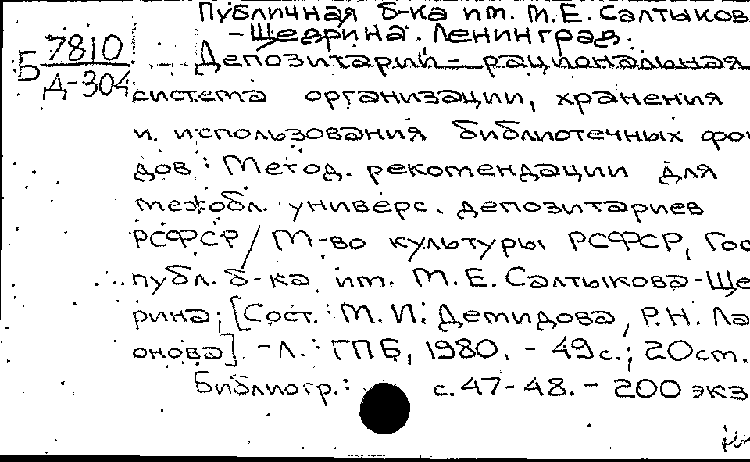 Публичная б-ка им. М.Е. Салтыков
-Щедрина. Ленинград.
Б 7810
Д-304
Депозитарий - рациональная
система организации, хранения
и использования библиотечных фон
дов: Метод. рекомендации для
межобл. универс. депозитариев
РСФСР / М-во культуры РСФСР, Гос
публ. б-ка им. М.Е. Салтыкова-Ще
рина; [Сост.: М.И. Демидова, Р.Н. Ла
онова]. - Л.: ГПБ, 1980. - 49с.; 20см.
Библиогр.: с.47-48. - 200 экз